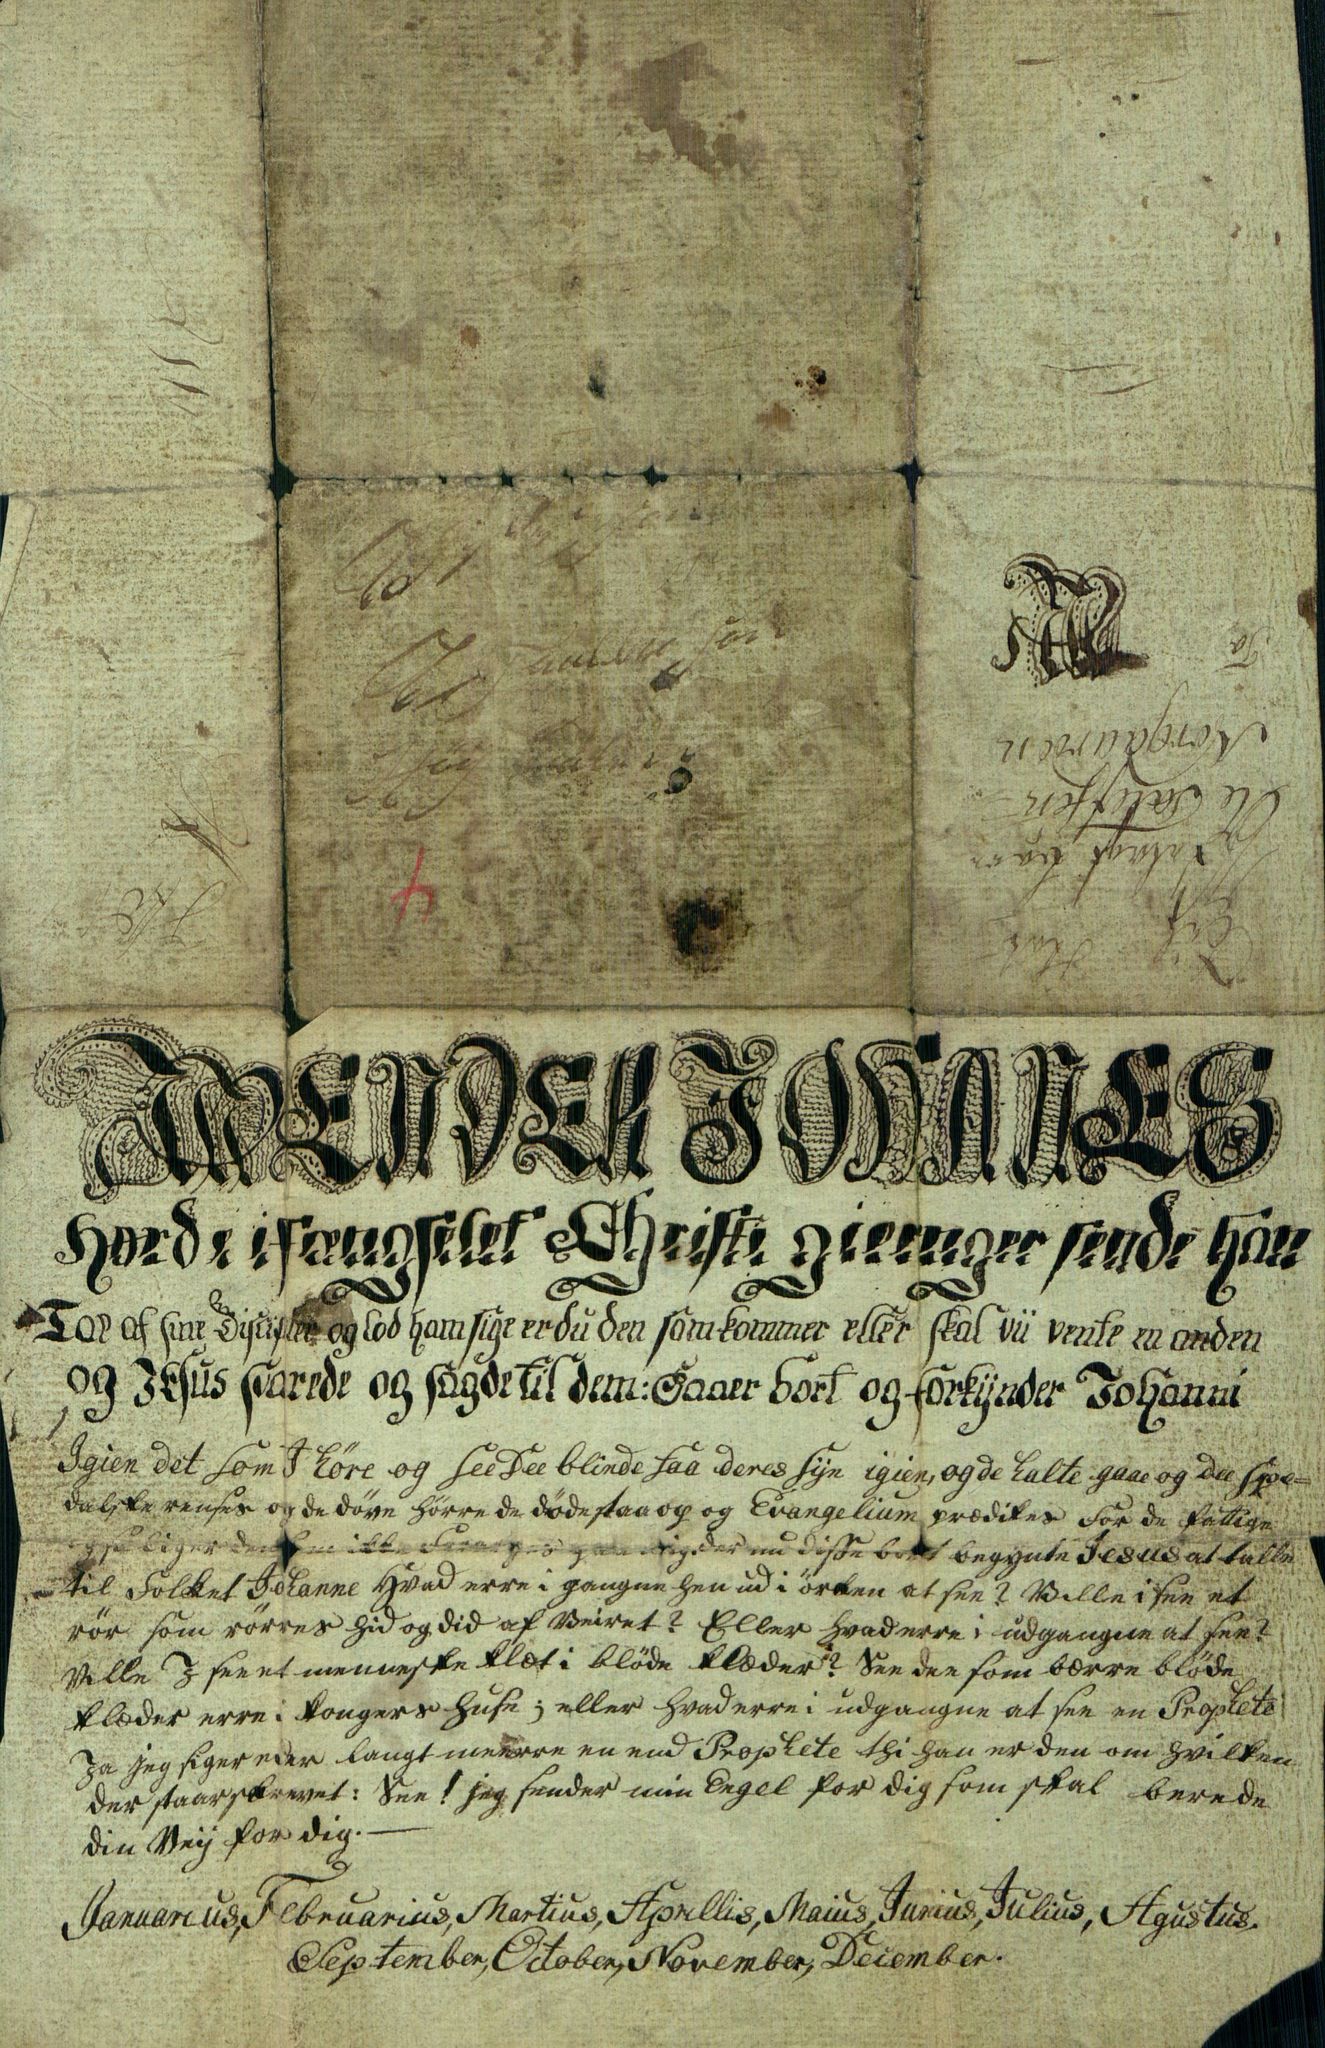 MEN DER JOHANNES
Hørde i fængselet Christi gierenger sende han
Toe af sine Discipler og lod ham sige er du den som kommer eller skal vii vente en anden
og JEsus svarede og sagde til dem: Gaaer bort og forkÿnder Johanni
Igien det som I høre og see Dee blinde faa deres sÿn igien, og de halte gaae og dee spe=
dalske renses og de døve hørre de døde staa op og Evangelium prædikes for de fattige
nu disse bort begynte Jesus at talle
til Folket Johanne Hvad erre i gangne hen ud i ørken at see? Ville i see et
rør som rørres hid og did af Veiret? Eller hvad erre i udgangne at see?
Ville I see et menneske klæt i bløde klæder? See dee som bærre bløde
klæder erre i kongers huse; eller hvad erre i udgangne at see en Prophete
Ja jeg siger eder langt meerre en end Prophete thi han er den om hvilken
der staar skrevet: See! jeg sender min Engel for dig som skal berede
din Veÿ for dig.—
Januarius, Februarius, Martius, Aprillis, Maius, Junius, Julius, Agustus.
September, October, November, December.
Norgaarden